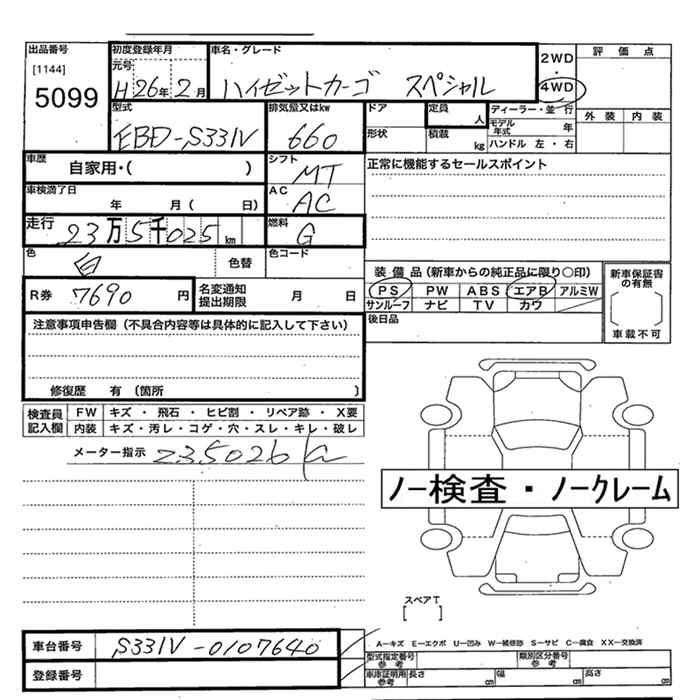 出品番号
[1144]
5099
初度登録年月
元号
H 26年 2月
車名・グレード
ハイゼットカーゴ スペシャル
2WD
・
4WD
評価点
外装 内装
型式
EBD-S331V
排気量又はkw
660
ドア
形状
定員
人
積載
kg
ディーラー・並行
モデル年式 年
ハンドル 左・右
車歴
自家用・( )
シフト
MT
正常に機能するセールスポイント
車検満了日
年 月 ( 日)
AC
AC
走行
23万5千025km
燃料
G
色
白
色替
色コード
R券
7690円
名変通知
提出期限
月 日
装備品(新車からの純正品に限り○印)
PS PW ABS エアB アルミW
サンルーフ ナビ TV カワ ( )
後日品
新車保証書
の有無
[ ]
車載不可
注意事項申告欄(不具合内容等は具体的に記入して下さい)
修復歴 有 (箇所 )
検査員
記入欄
FW キズ・飛石・ヒビ割・リペア跡・X要
内装 キズ・汚レ・コゲ・穴・スレ・キレ・破レ
メーター指示 235026
ノー検査・ノークレーム
スペアT
[ ]
車台番号
S331V-0107640
登録番号
A—キズ E—エクボ U—凹み W—補修跡 S—サビ C—腐食 XX—交換済
型式指定番号
参考
類別区分番号
参考
車庫証明用
参考
長さ cm 幅 cm 高さ cm